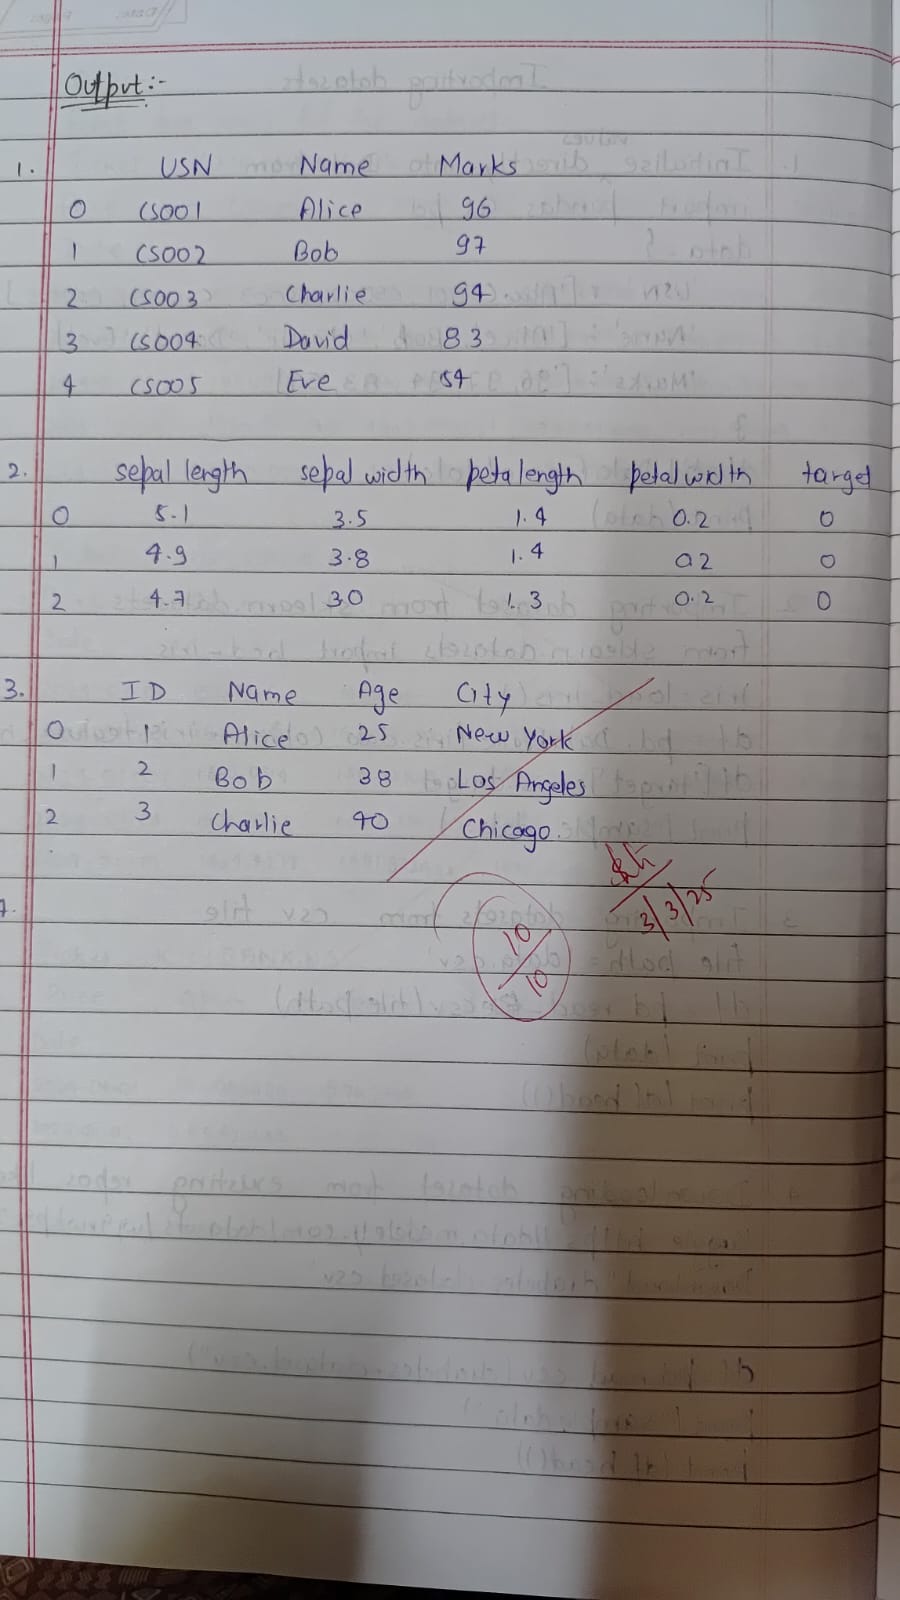 Output:-
1. USN Name Marks
0 CS001 Alice 96
1 CS002 Bob 97
2 CS003 Charlie 94
3 CS004 David 83
4 CS005 Eve 54
2. sepal length sepal width petal length petal width target
0 5.1 3.5 1.4 0.2 0
1 4.9 3.8 1.4 02 0
2 4.7 30 1.3 0.2 0
3. ID Name Age City
0 1 Alice 25 New York
1 2 Bob 38 Los Angeles
2 3 Charlie 40 Chicago.
3/3/25
10/10